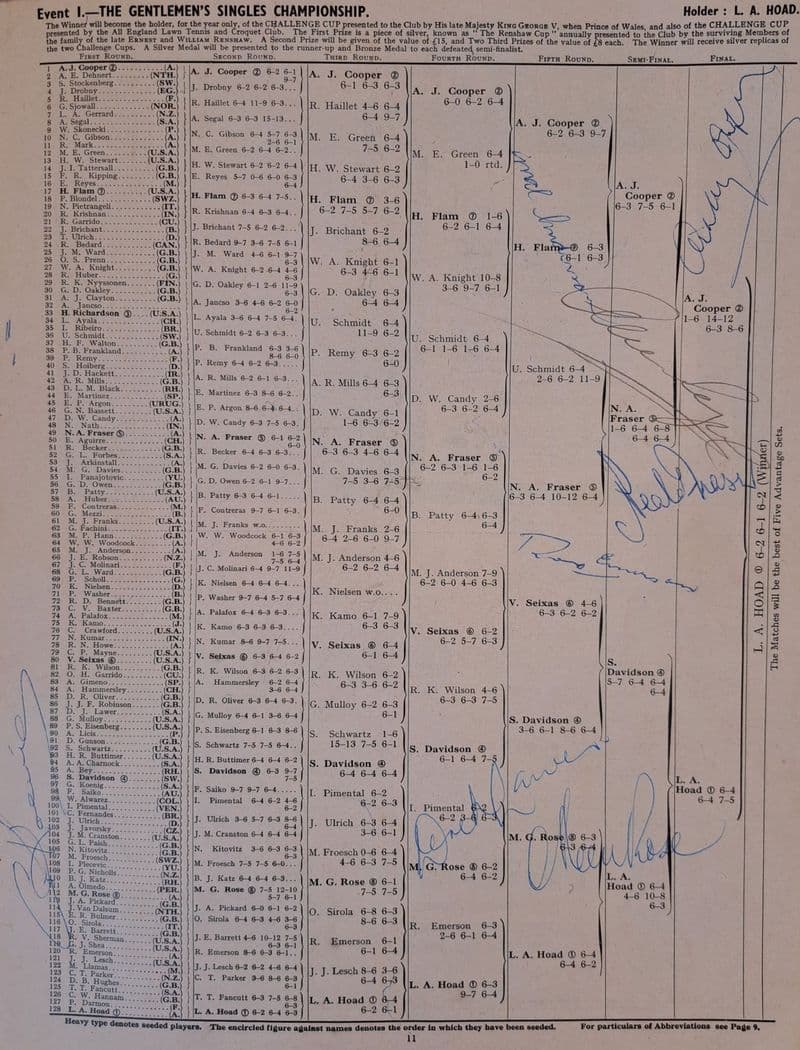 Event I.—THE GENTLEMEN'S SINGLES CHAMPIONSHIP.
Holder : L. A. HOAD.
The Winner will become the holder, for the year only, of the CHALLENGE CUP presented to the Club by His late Majesty KING GEORGE V, when Prince of Wales, and also of the CHALLENGE CUP
presented by the All England Lawn Tennis and Croquet Club. The First Prize is a piece of silver, known as "The Renshaw Cup" annually presented to the Club by the surviving Members of
the family of the late ERNEST and WILLIAM RENSHAW. A Second Prize will be given of the value of £15, and Two Third Prizes of the value of £8 each. The Winner will receive silver replicas of
the two Challenge Cups. A Silver Medal will be presented to the runner-up and Bronze Medal to each defeated semi-finalist.
FIRST ROUND.
1 A. J. Cooper ②(A.)
2 A. E. Dehnert(NTH.)
3 S. Stockenberg(SW.)
4 J. Drobny(EG.)
5 R. Haillet(F.)
6 G. Sjowall(NOR.)
7 L. A. Gerrard(N.Z.)
8 A. Segal(S.A.)
9 W. Skonecki(P.)
10 N. C. Gibson(A.)
11 R. Mark(A.)
12 M. E. Green(U.S.A.)
13 H. W. Stewart(U.S.A.)
14 J. I. Tattersall(G.B.)
15 F. R. Kipping(G.B.)
16 E. Reyes(M.)
17 H. Flam ⑦(U.S.A.)
18 P. Blondel(SWZ.)
19 N. Pietrangeli(IT.)
20 R. Krishnan(IN.)
21 R. Garrido(CU.)
22 J. Brichant(B.)
23 T. Ulrich(D.)
24 R. Bedard(CAN.)
25 J. M. Ward(G.B.)
26 O. S. Prenn(G.B.)
27 W. A. Knight(G.B.)
28 R. Huber(G.)
29 R. K. Nyyssonen(FIN.)
30 G. D. Oakley(G.B.)
31 A. J. Clayton(G.B.)
32 A. Jancso
33 H. Richardson ③(U.S.A.)
34 L. Ayala(CH.)
35 I. Ribeiro(BR.)
36 U. Schmidt(SW.)
37 H. F. Walton(G.B.)
38 P. B. Frankland(A.)
39 P. Remy(F.)
40 S. Hoiberg(D.)
41 J. D. Hackett(IR.)
42 A. R. Mills(G.B.)
43 D. L. M. Black(RH.)
44 E. Martinez(SP.)
45 E. P. Argon(URUG.)
46 G. N. Bassett(U.S.A.)
47 D. W. Candy(A.)
48 N. Nath(IN.)
49 N. A. Fraser ⑤(A.)
50 E. Aguirre(CH.)
51 R. Becker(G.B.)
52 G. L. Forbes(S.A.)
53 J. Arkinstall(A.)
54 M. G. Davies(G.B.)
55 I. Panajotovic(YU.)
56 G. D. Owen(G.B.)
57 B. Patty(U.S.A.)
58 A. Huber(AU.)
59 F. Contreras(M.)
60 G. Mezzi(B.)
61 M. J. Franks(U.S.A.)
62 G. Fachini(IT.)
63 M. P. Hann(G.B.)
64 W. W. Woodcock(A.)
65 M. J. Anderson(A.)
66 J. E. Robson(N.Z.)
67 J. C. Molinari(F.)
68 G. L. Ward(G.B.)
69 P. Scholl(G.)
70 K. Nielsen(D.)
71 P. Washer(B.)
72 R. D. Bennett(G.B.)
73 C. V. Baxter(G.B.)
74 A. Palafox(M.)
75 K. Kamo(J.)
76 C. Crawford(U.S.A.)
77 N. Kumar(IN.)
78 R. N. Howe(A.)
79 C. P. Mayne(U.S.A.)
80 V. Seixas ⑥(U.S.A.)
81 R. K. Wilson(G.B.)
82 O. H. Garrido(CU.)
83 A. Gimeno(SP.)
84 A. Hammersley(CH.)
85 D. R. Oliver(G.B.)
86 J. J. F. Robinson(G.B.)
87 D. J. Lawer(S.A.)
88 G. Mulloy(U.S.A.)
89 P. S. Eisenberg(U.S.A.)
90 A. Licis(P.)
91 D. Gunson(G.B.)
92 S. Schwartz(U.S.A.)
93 H. R. Buttimer(U.S.A.)
94 A. A. Charnock(S.A.)
95 A. Bey(RH.)
96 S. Davidson ④(SW.)
97 G. Koenig(S.A.)
98 F. Saiko(AU.)
99 W. Alwarez(COL.)
100 I. Pimental(VEN.)
101 C. Fernandes(BR.)
102 J. Ulrich(D.)
103 J. Javorsky(CZ.)
104 J. M. Cranston(U.S.A.)
105 G. L. Paish(G.B.)
106 N. Kitovitz(G.B.)
107 M. Froesch(SWZ.)
108 I. Plecevic(YU.)
109 P. G. Nicholls(N.Z.)
110 B. J. Katz(RH.)
111 A. Olmedo(PER.)
112 M. G. Rose ⑧(A.)
113 J. A. Pickard(G.B.)
114 J. Van Dalsum(NTH.)
115 E. R. Bulmer(G.B.)
116 O. Sirola(IT.)
117 J. E. Barrett(G.B.)
118 R. V. Sherman(U.S.A.)
119 G. J. Shea(U.S.A.)
120 R. Emerson(A.)
121 J. J. Lesch(U.S.A.)
122 M. Llamas(M.)
123 C. T. Parker(N.Z.)
124 D. B. Hughes(G.B.)
125 T. T. Fancutt(S.A.)
126 C. W. Hannam(G.B.)
127 P. Darmon(F.)
128 L. A. Hoad ①(A.)
SECOND ROUND.
A. J. Cooper ② 6–2 6–1
9–7
J. Drobny 6–2 6–2 6–3
R. Haillet 6–4 11–9 6–3
A. Segal 6–3 6–3 15–13
N. C. Gibson 6–4 5–7 6–3
2–6 6–1
M. E. Green 6–2 6–4 6–2
H. W. Stewart 6–2 6–2 6–4
E. Reyes 5–7 0–6 6–0 6–3
6–4
H. Flam ⑦ 6–3 6–4 7–5
R. Krishnan 6–4 6–3 6–4
J. Brichant 7–5 6–2 6–2
R. Bedard 9–7 3–6 7–5 6–1
J. M. Ward 4–6 6–1 9–7
6–3
W. A. Knight 6–2 6–4 4–6
6–3
G. D. Oakley 6–1 2–6 11–9
6–3
A. Jancso 3–6 4–6 6–2 6–0
6–2
L. Ayala 3–6 6–4 7–5 6–4
U. Schmidt 6–2 6–3 6–3
P. B. Frankland 6–3 3–6
8–6 6–0
P. Remy 6–4 6–2 6–3
A. R. Mills 6–2 6–1 6–3
E. Martinez 6–3 8–6 6–2
E. P. Argon 8–6 6–4 6–4
D. W. Candy 6–3 7–5 6–3
N. A. Fraser ⑤ 6–1 6–2
6–0
R. Becker 6–4 6–3 6–3
M. G. Davies 6–2 6–0 6–3
G. D. Owen 6–2 6–1 9–7
B. Patty 6–3 6–4 6–1
F. Contreras 9–7 6–1 6–3
M. J. Franks w.o.
W. W. Woodcock 6–1 6–3
4–6 6–2
M. J. Anderson 1–6 7–5
7–5 6–4
J. C. Molinari 6–4 9–7 11–9
K. Nielsen 6–4 6–4 6–4
P. Washer 9–7 6–4 5–7 6–4
A. Palafox 6–4 6–3 6–3
K. Kamo 6–3 6–3 6–3
N. Kumar 8–6 9–7 7–5
V. Seixas ⑥ 6–3 6–4 6–2
R. K. Wilson 6–3 6–2 6–3
A. Hammersley 6–2 6–4
3–6 6–4
D. R. Oliver 6–3 6–4 6–3
G. Mulloy 6–4 6–1 3–6 6–4
P. S. Eisenberg 6–1 6–3 8–6
S. Schwartz 7–5 7–5 6–4
H. R. Buttimer 6–4 6–4 6–2
S. Davidson ④ 6–3 9–7
7–5
F. Saiko 9–7 9–7 6–4
I. Pimental 6–4 6–2 4–6
6–2
J. Ulrich 3–6 5–7 6–3 8–6
6–4
J. M. Cranston 6–4 6–4 6–4
N. Kitovitz 3–6 6–3 6–3
6–3
M. Froesch 7–5 7–5 6–0
B. J. Katz 6–4 6–4 6–3
M. G. Rose ⑧ 7–5 12–10
5–7 6–1
J. A. Pickard 6–0 6–1 6–2
O. Sirola 6–4 6–3 4–6 3–6
6–3
J. E. Barrett 4–6 10–12 7–5
6–3 6–1
R. Emerson 8–6 6–3 6–1
J. J. Lesch 6–2 6–2 4–6 6–4
C. T. Parker 3–6 8–6 6–3
6–1
T. T. Fancutt 6–3 7–5 6–8
6–3
L. A. Hoad ① 6–2 6–4 6–3
THIRD ROUND.
A. J. Cooper ②
6–1 6–3 6–3
R. Haillet 4–6 6–4
6–4 9–7
M. E. Green 6–4
7–5 6–2
H. W. Stewart 6–2
6–4 3–6 6–3
H. Flam ⑦ 3–6
6–2 7–5 5–7 6–2
J. Brichant 6–2
8–6 6–4
W. A. Knight 6–1
6–3 4–6 6–1
G. D. Oakley 6–3
6–4 6–4
U. Schmidt 6–4
11–9 6–2
P. Remy 6–3 6–2
6–0
A. R. Mills 6–4 6–3
6–3
D. W. Candy 6–1
1–6 6–3 6–2
N. A. Fraser ⑤
6–3 6–3 4–6 6–4
M. G. Davies 6–3
7–5 3–6 7–5
B. Patty 6–4 6–4
6–0
M. J. Franks 2–6
6–4 2–6 6–0 9–7
M. J. Anderson 4–6
6–2 6–2 6–4
K. Nielsen w.o.
K. Kamo 6–1 7–9
6–3 6–3
V. Seixas ⑥ 6–4
6–1 6–4
R. K. Wilson 6–2
6–3 3–6 6–2
G. Mulloy 6–2 6–3
6–1
S. Schwartz 1–6
15–13 7–5 6–1
S. Davidson ④
6–4 6–4 6–4
I. Pimental 6–2
6–2 6–3
J. Ulrich 6–3 6–4
3–6 6–1
M. Froesch 0–6 6–4
4–6 6–3 7–5
M. G. Rose ⑧ 6–1
7–5 7–5
O. Sirola 6–8 6–3
8–6 6–3
R. Emerson 6–1
6–1 6–4
J. J. Lesch 8–6 3–6
6–4 6–3
L. A. Hoad ① 6–4
6–2 6–1
FOURTH ROUND.
A. J. Cooper ②
6–0 6–2 6–4
M. E. Green 6–4
1–0 rtd.
H. Flam ⑦ 1–6
6–2 6–1 6–4
W. A. Knight 10–8
3–6 9–7 6–1
U. Schmidt 6–4
6–1 1–6 1–6 6–4
D. W. Candy 2–6
6–3 6–2 6–4
N. A. Fraser ⑤
6–2 6–3 1–6 1–6
6–2
B. Patty 6–4 6–3
6–4
M. J. Anderson 7–9
6–2 6–0 4–6 6–3
V. Seixas ⑥ 6–2
6–2 5–7 6–3
R. K. Wilson 4–6
6–3 6–3 7–5
S. Davidson ④
6–1 6–4 7–5
I. Pimental 6–2
6–2 3–6 6–3
M. G. Rose ⑧ 6–2
6–4 6–2
R. Emerson 6–3
2–6 6–1 6–4
L. A. Hoad ① 6–3
9–7 6–4
FIFTH ROUND.
A. J. Cooper ②
6–2 6–3 9–7
H. Flam ⑦ 6–3
6–1 6–3
U. Schmidt 6–4
2–6 6–2 11–9
N. A. Fraser ⑤
6–3 6–4 10–12 6–4
V. Seixas ⑥ 4–6
6–3 6–2 6–2
S. Davidson ④
3–6 6–1 8–6 6–4
M. G. Rose ⑧ 6–3
6–3 6–4
L. A. Hoad ① 6–4
6–4 6–2
SEMI-FINAL.
A. J.
Cooper ②
6–3 7–5 6–1
N. A.
Fraser ⑤
1–6 6–4 6–8
6–4 6–4
S.
Davidson ④
5–7 6–4 6–4
6–4
L. A.
Hoad ① 6–4
4–6 10–8
6–3
FINAL.
A. J.
Cooper ②
1–6 14–12
6–3 8–6
L. A.
Hoad ① 6–4
6–4 7–5
L. A. HOAD ① 6–2 6–1 6–2 (Winner)
The Matches will be the best of Five Advantage Sets.
Heavy type denotes seeded players. The encircled figure against names denotes the order in which they have been seeded. For particulars of Abbreviations see Page 9.
11